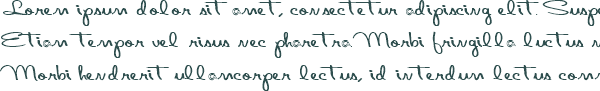 Lorem ipsum dolor sit amet, consectetur adipiscing elit. Suspe
Etiam tempor vel risus nec pharetra Morbi fringilla luctus
Morbi hendrerit ullamcorper lectus, id interdum lectus con